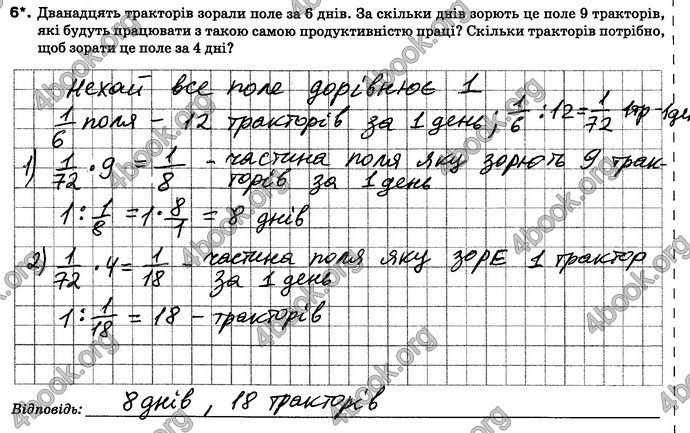 6*. Дванадцять тракторів зорали поле за 6 днів. За скільки днів зорють це поле 9 тракторів,
які будуть працювати з такою самою продуктивністю праці? Скільки тракторів потрібно,
щоб зорати це поле за 4 дні?
Нехай все поле дорівнює 1
1/6 поля – 12 тракторів за 1 день; 1/6 : 12 = 1/72 1тр – 1 де
1) 1/72 · 9 = 1/8 – частина поля яку зорють 9 трак-
торів за 1 день
1 : 1/8 = 1 · 8/1 = 8 днів
2) 1/72 · 4 = 1/18 – частина поля яку зоре 1 трактор
за 1 день
1 : 1/18 = 18 – тракторів
Відповідь: 8 днів, 18 тракторів
4book.org